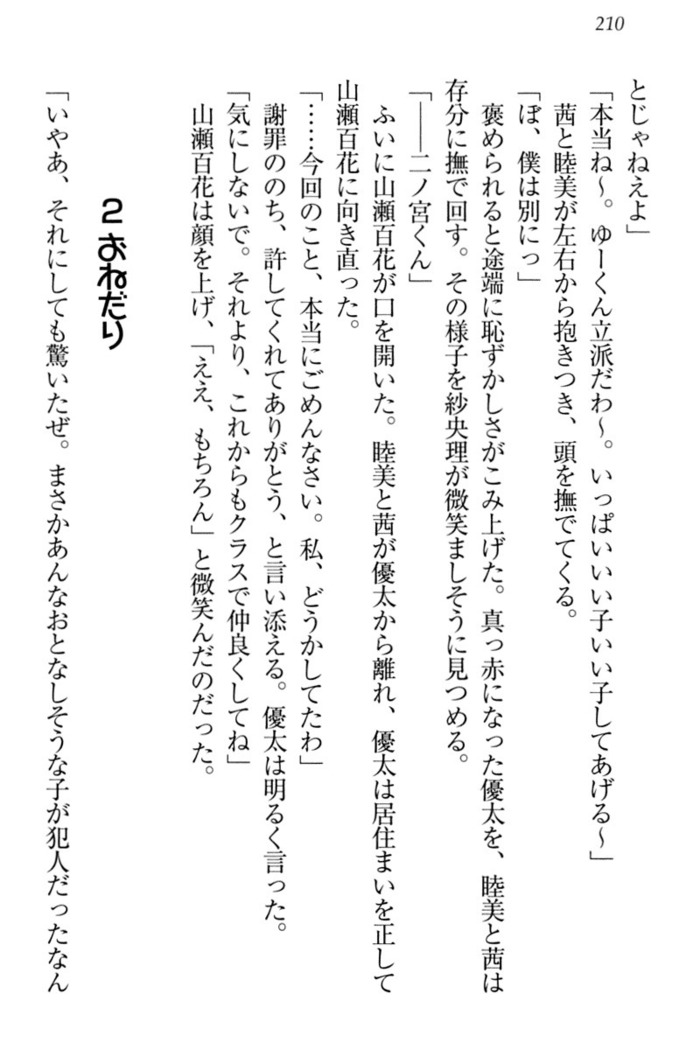 210
とじゃねえよ」
「本当ね〜。ゆーくん立派だわ〜。いっぱいいい子いい子してあげる〜」
茜と睦美が左右から抱きつき、頭を撫でてくる。
「ぼ、僕は別にっ」
褒められると途端に恥ずかしさがこみ上げた。真っ赤になった優太を、睦美と茜は
存分に撫で回す。その様子を紗央理が微笑ましそうに見つめる。
「――二ノ宮くん」
ふいに山瀬百花が口を開いた。睦美と茜が優太から離れ、優太は居住まいを正して
山瀬百花に向き直った。
「……今回のこと、本当にごめんなさい。私、どうかしてたわ」
謝罪ののち、許してくれてありがとう、と言い添える。優太は明るく言った。
「気にしないで。それより、これからもクラスで仲良くしてね」
山瀬百花は顔を上げ、「ええ、もちろん」と微笑んだのだった。
2 おねだり
「いやあ、それにしても驚いたぜ。まさかあんなおとなしそうな子が犯人だったなん